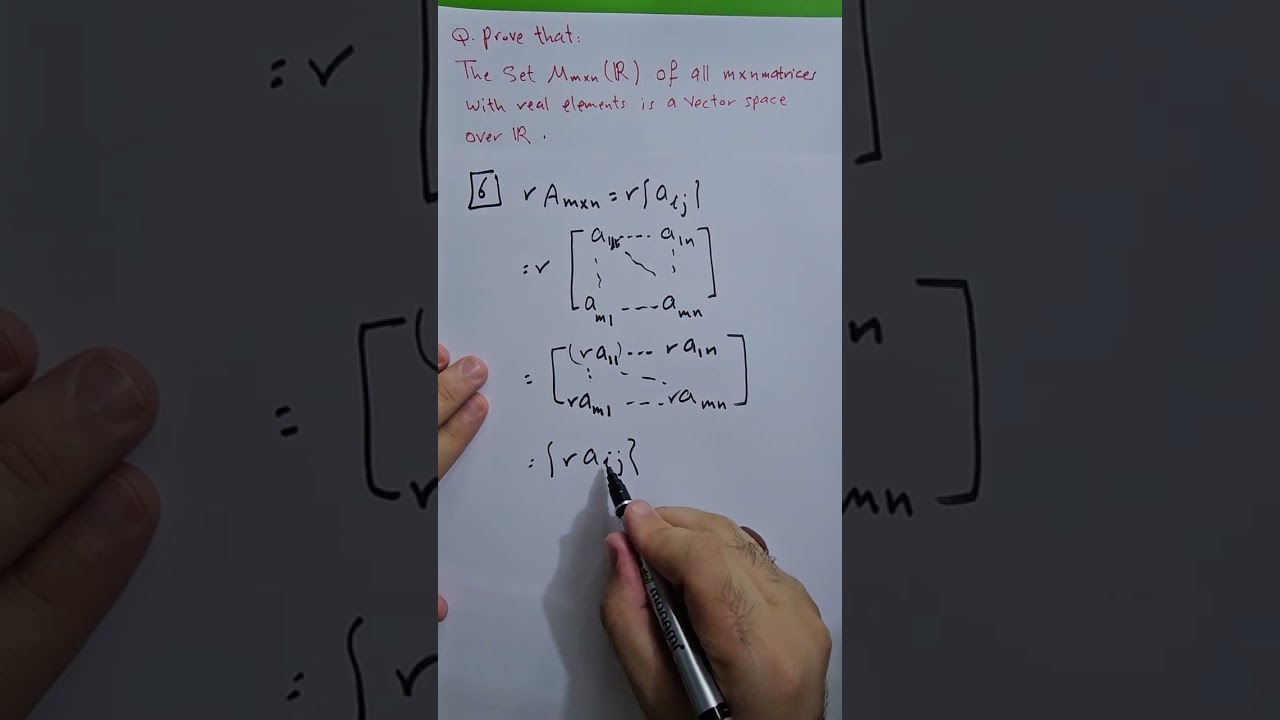 Q. prove that:
The set Mmxn(ℝ) of all mxn matrices
with real elements is a vector space
over ℝ.
6 r Amxn = r{aij}
= r [a11 ---- a1n
am1 ---- amn]
= [(ra11) --- ra1n
ram1 ---- ramn]
= {raij}
monami